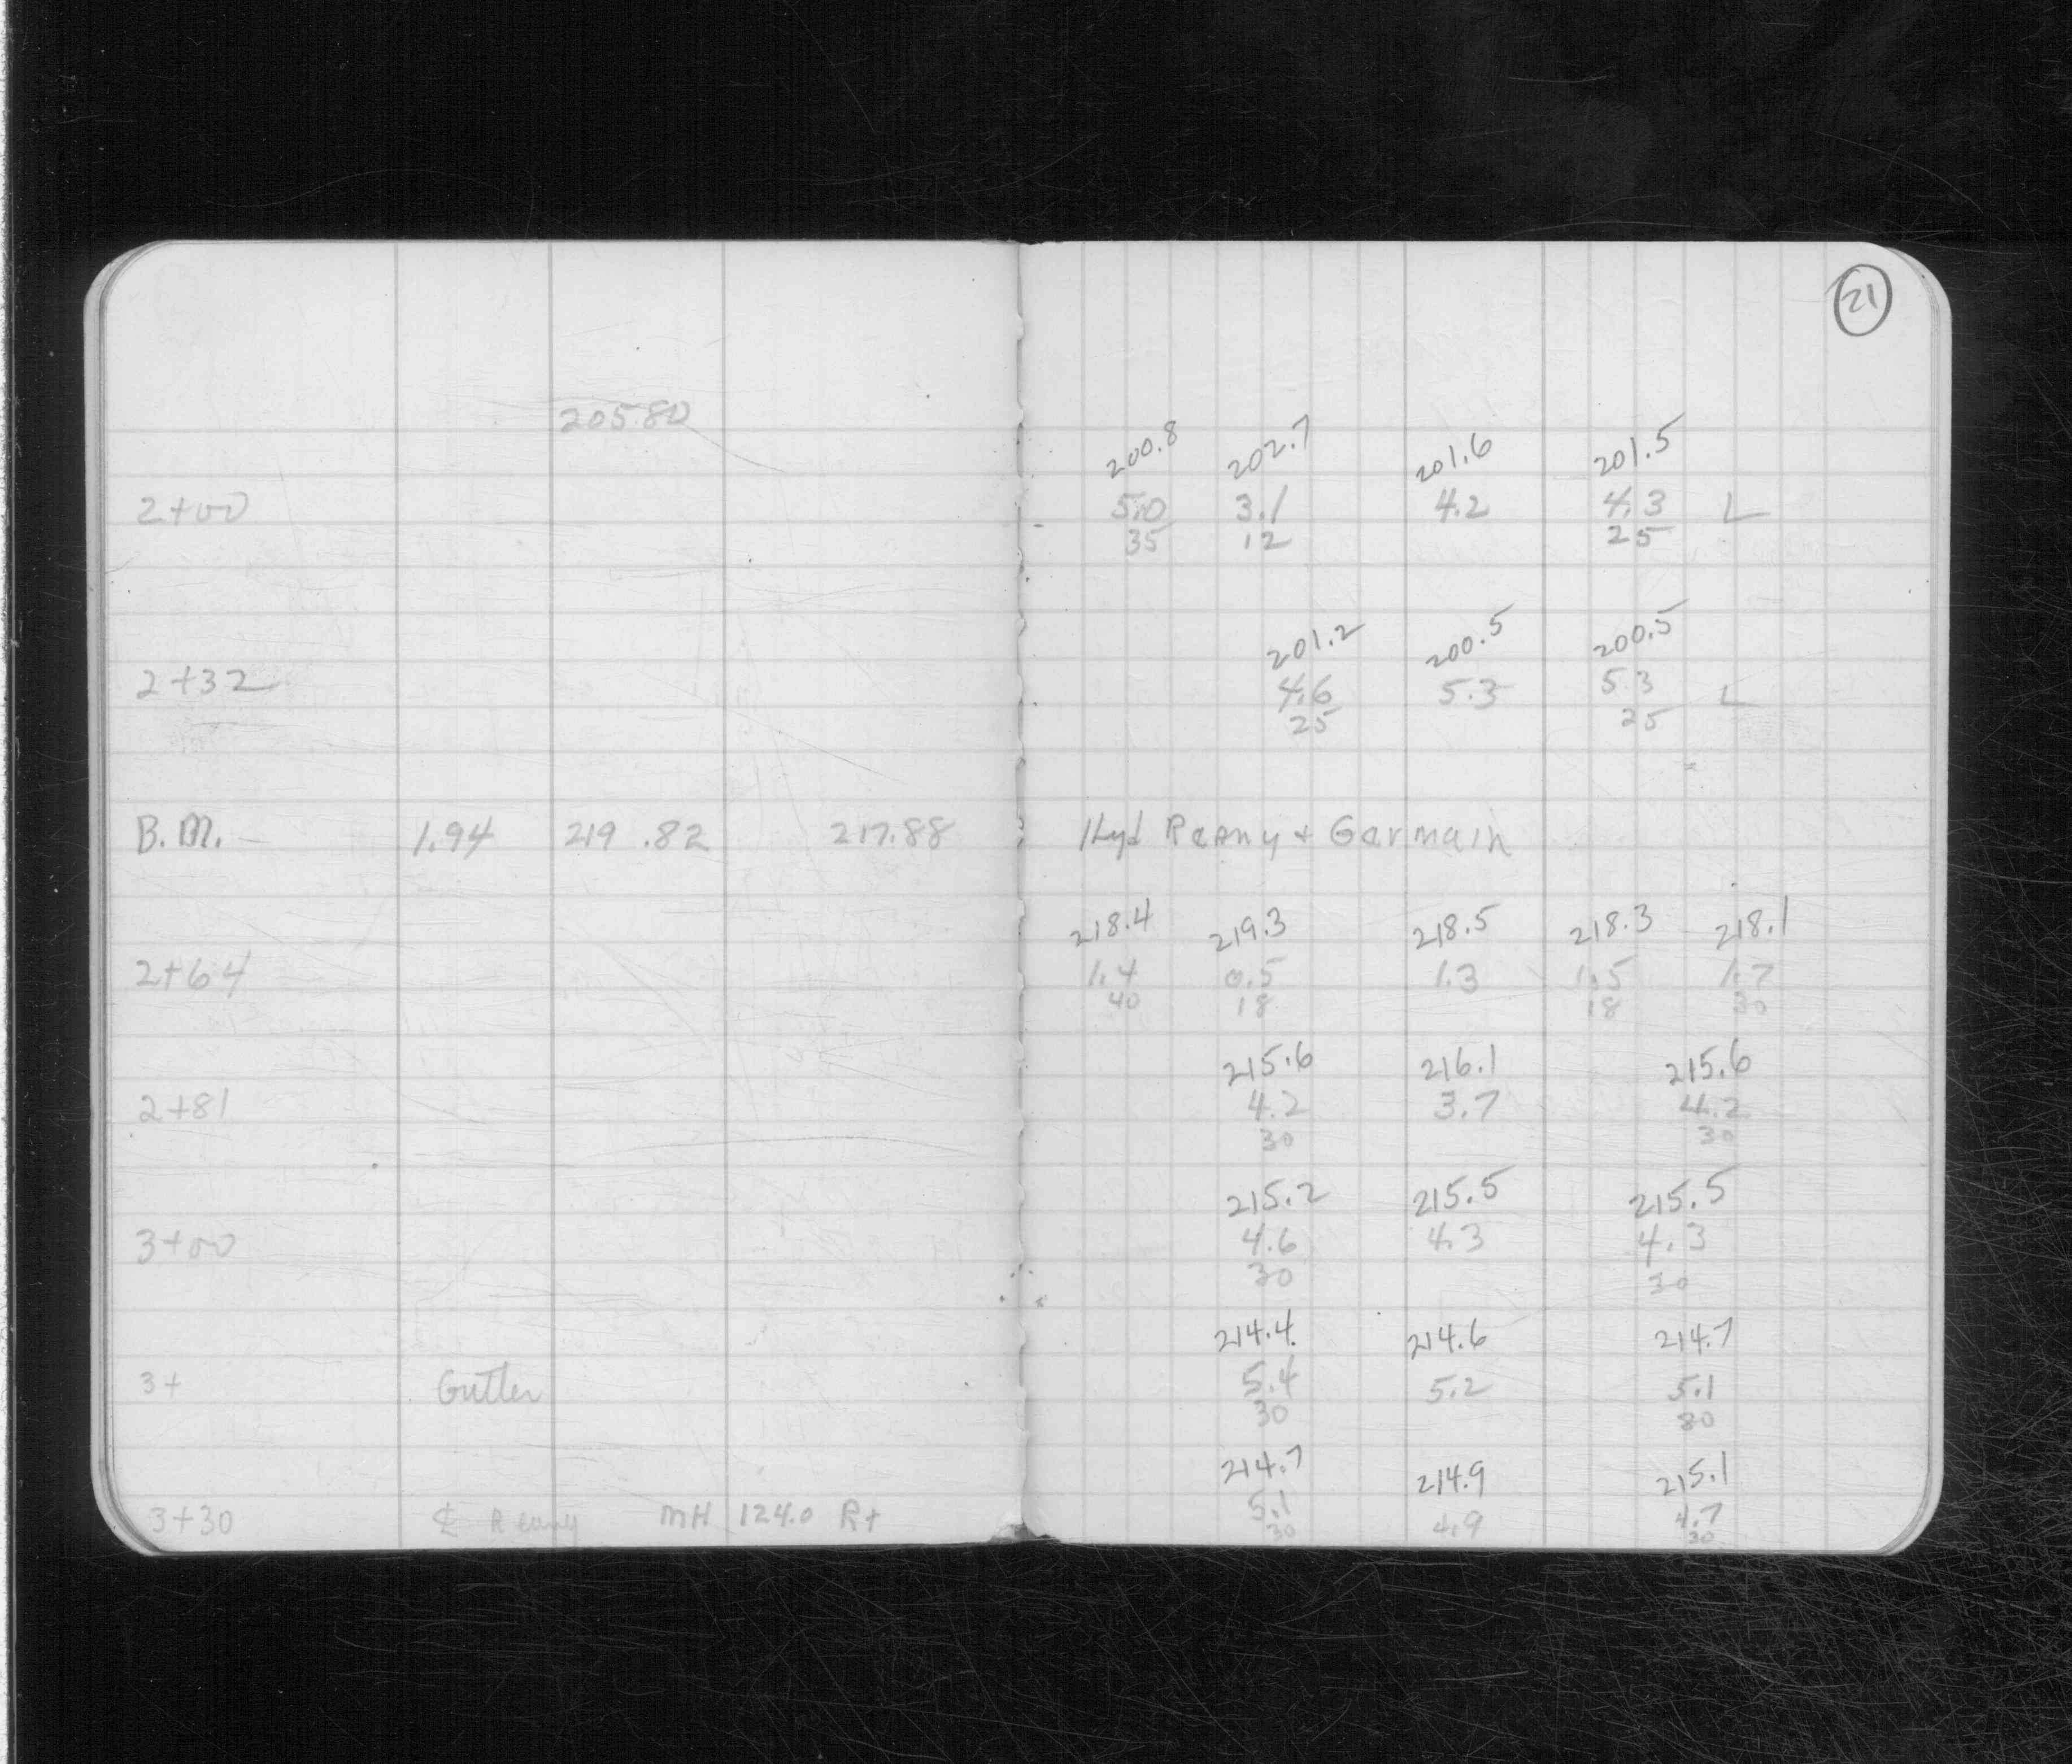 21
205.80
200.8 202.7 201.6 201.5
2+00 5.0 3.1 4.2 4.3 L
35 12 25
201.2 200.5 200.5
2+32 4.6 5.3 5.3 L
25 25
B.M. 1.94 219.82 217.88 Hyd + Germain
218.4 219.3 218.5 218.3 218.1
2+64 1.4 0.5 1.3 1.5 1.7
40 18 18 30
215.6 216.1 215.6
2+81 4.2 3.7 4.2
30 30
215.2 215.5 215.5
3+00 4.6 4.3 4.3
30 30
214.4 214.6 214.7
3+ Gutter 5.4 5.2 5.1
30 30
214.7 214.9 215.1
3+30 ℄ MH 124.0 Rt 5.1 4.9 4.7
30 30